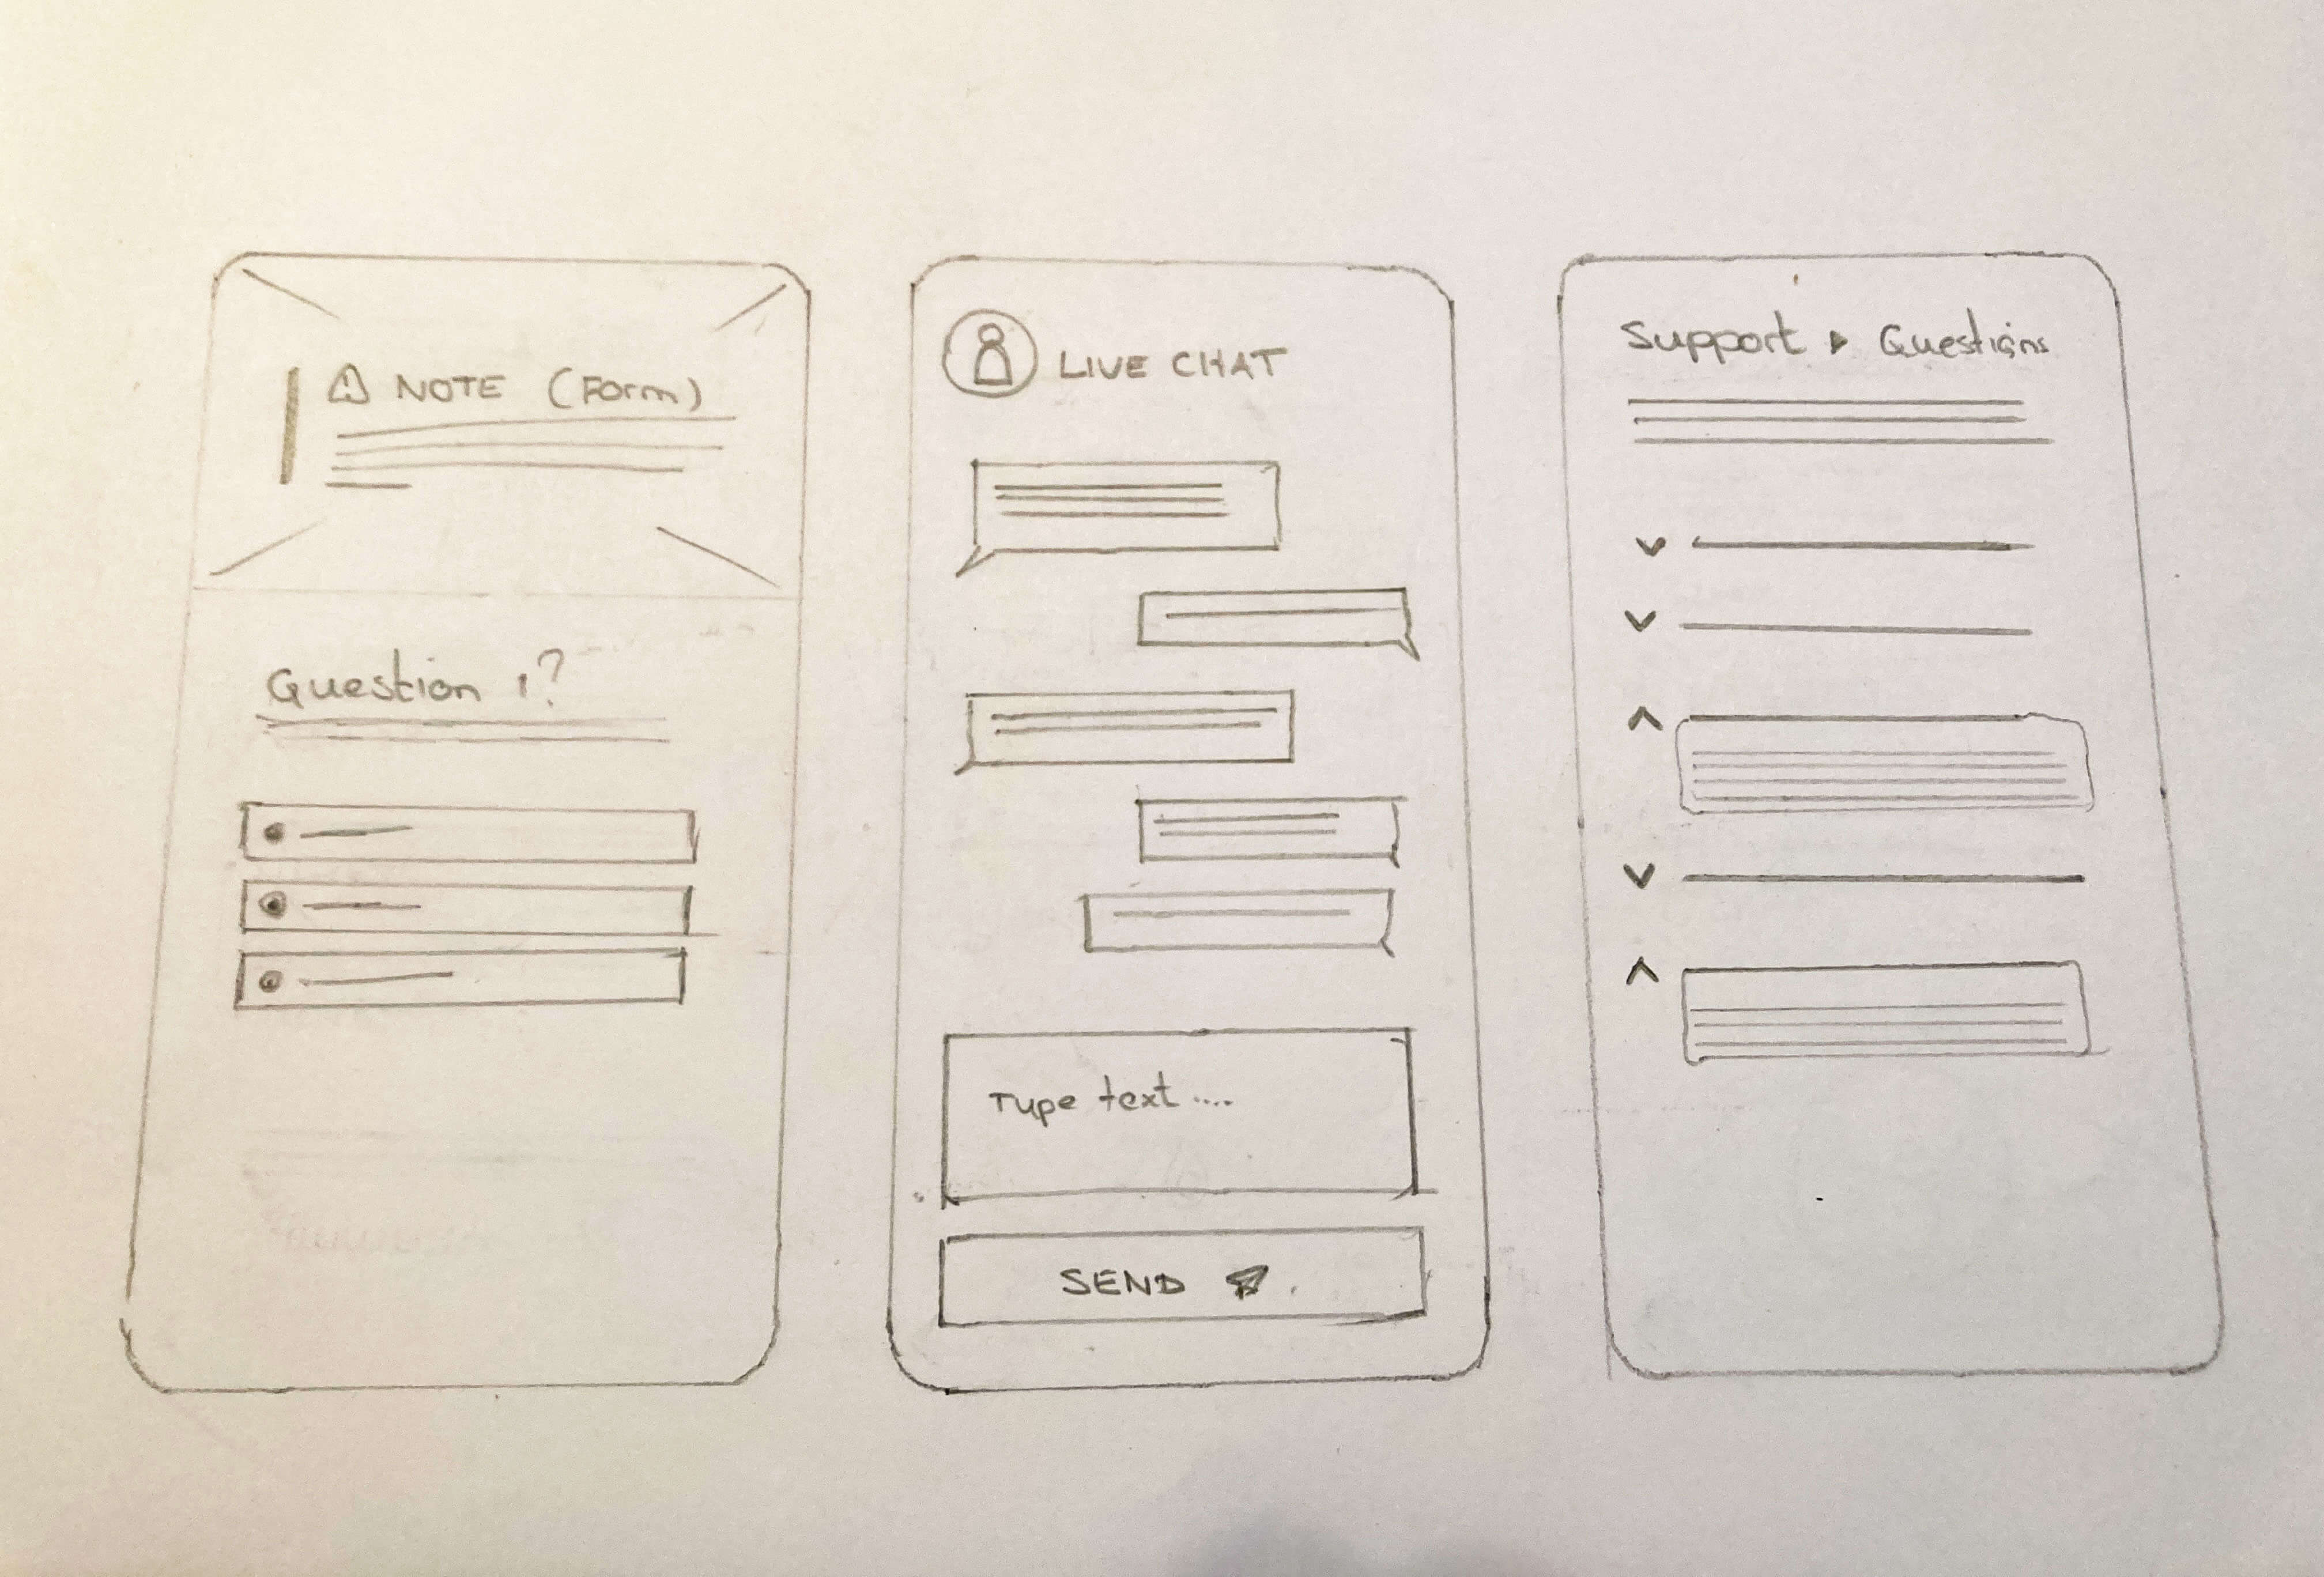 NOTE (Form)
Question 1?
LIVE CHAT
Type text ....
SEND
Support ▸ Questions